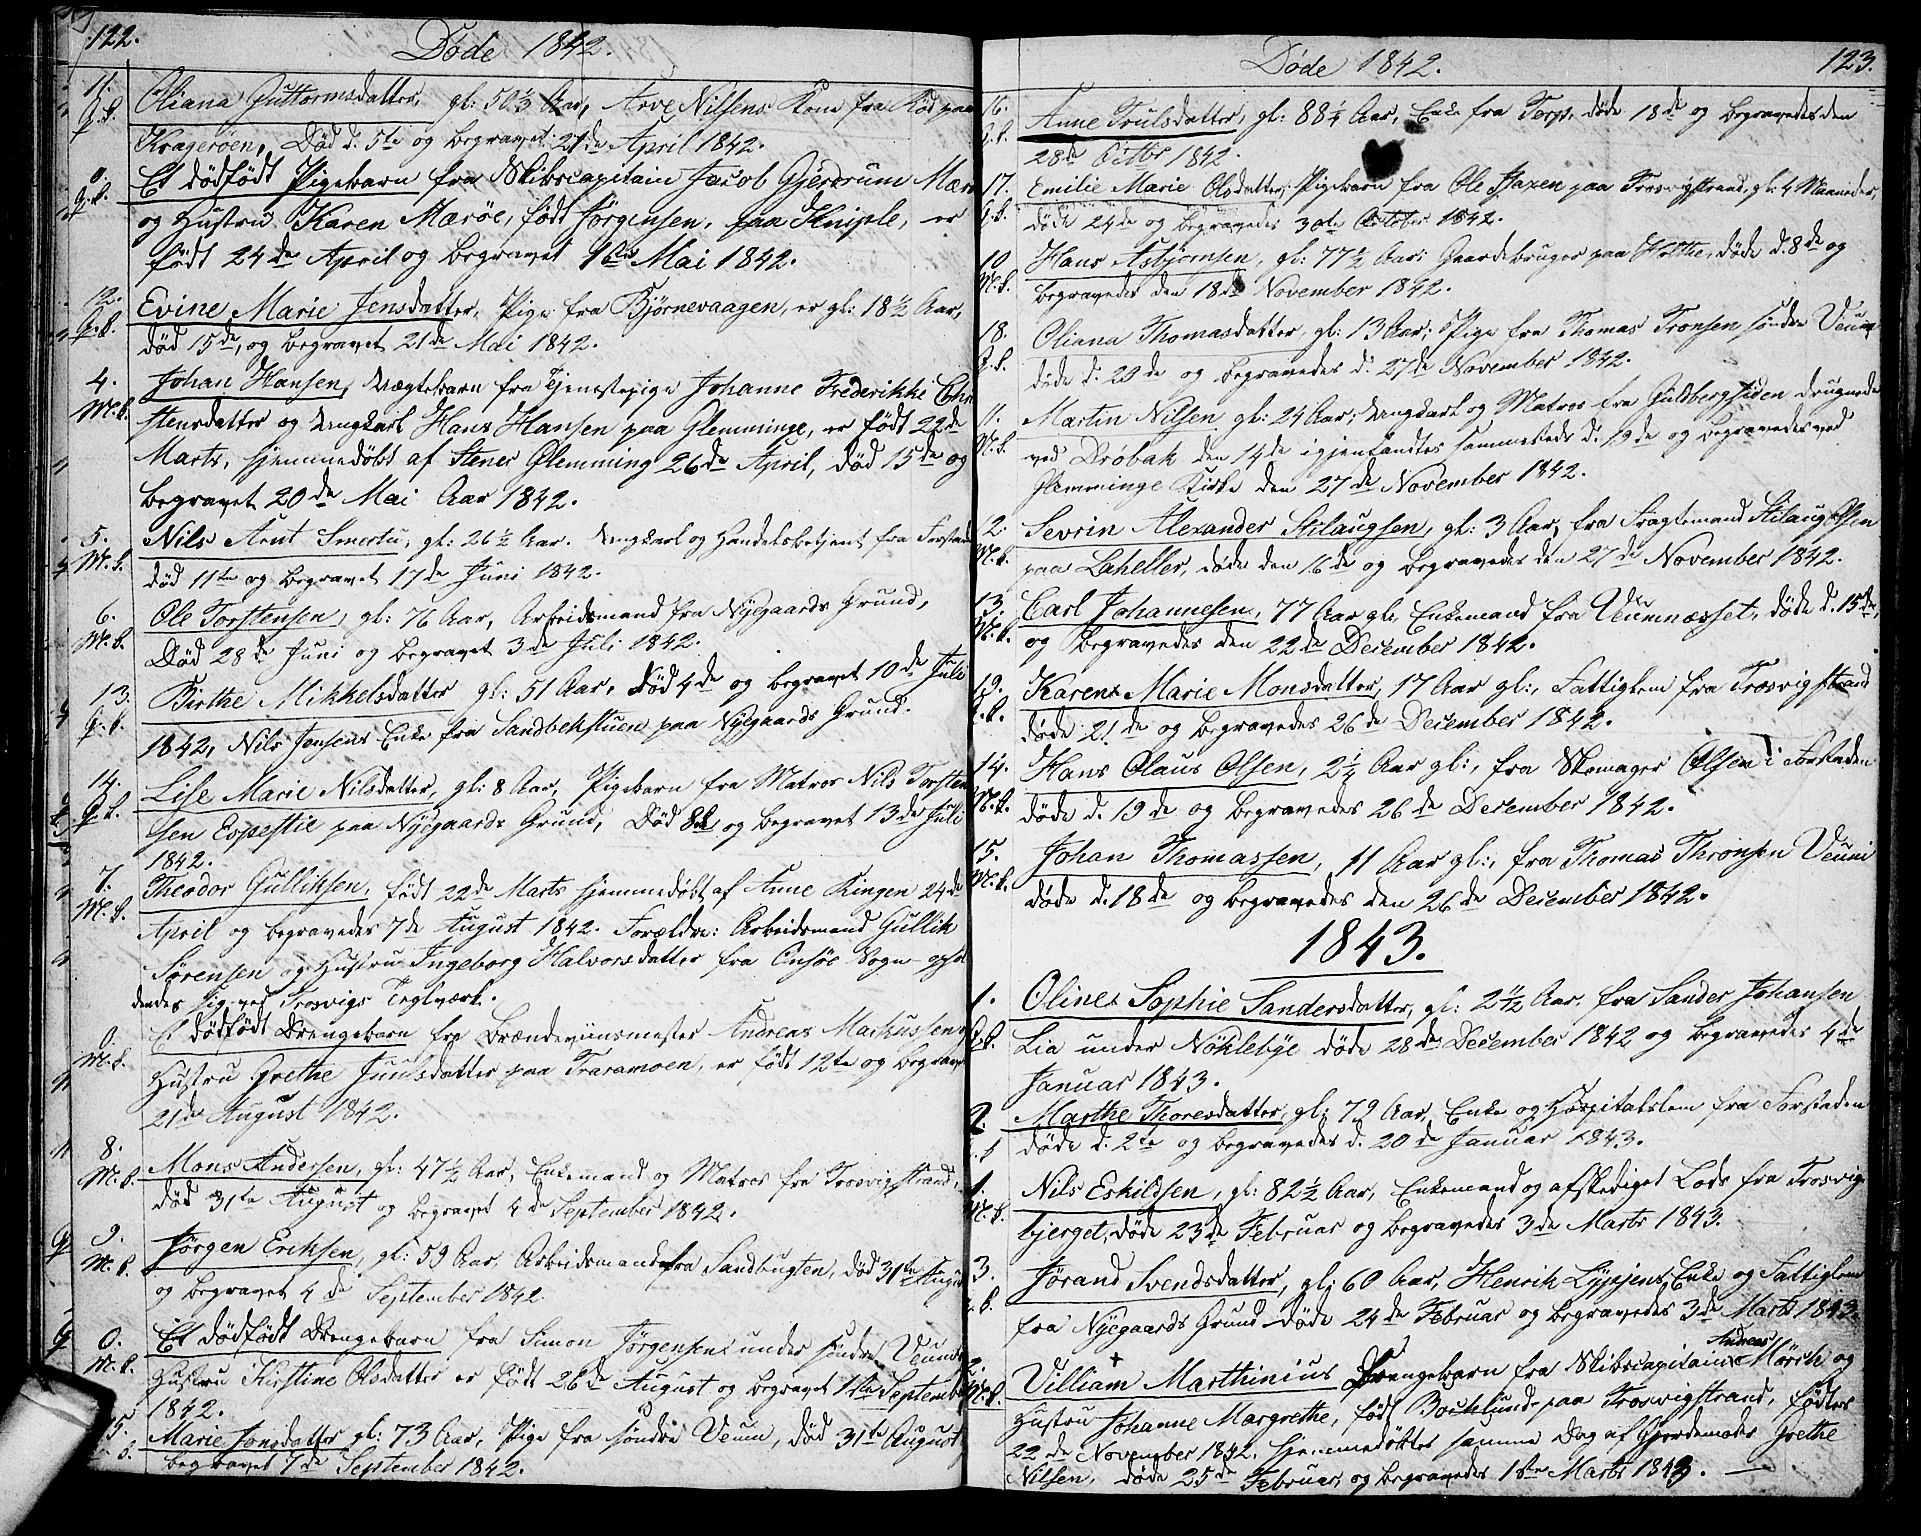 122.
Døde 1842.
11. Oliana Guttormsdatter, gl: 50 1/3 Aar, Arve Nilsens Kone fra Kød paa
Q.k. Kragerøen, Død d. 5te og begravet 21de April 1842.
0. Et dødfødt Pigebarn fra Skibscapitain Jacob Gjerdrum Mær
Q.k. og Hustru Karen Mærøe, født Jørgensen, paa Kniple, er
født 24de April og begravet 1ste Mai 1842.
12. Evine Marie Jensdatter, Pige fra Bjørnevaagen, er gl: 18 1/2 Aar,
Q.k. død 15de, og begravet 21de Mai 1842.
4. Johan Hansen, Uægtebarn fra Tjenestepige Johanne Frederikke Chri
M.k. stensdatter og Ungkarl Hans Hansen paa Glemminge, er født 22de
Marts, hjemmedøbt af Stener Glemming 26de April, død 15de og
begravet 20de Mai Aar 1842.
5. Nils Arnt Smertu, gl: 26 1/2 Aar. Ungkarl og Handelsbetjent fra Forstad
M.k. død 11te og begravet 17de Juni 1842.
6. Ole Torstensen, gl: 76 Aar, Arbeidsmand fra Nyegaards Grund,
M.k. Død 28de Juni og begravet 3de Juli 1842.
13. Birthe Mikkelsdatter gl: 51 Aar, død 4de og begravet 10de Juli
Q.k. 1842, Nils Jensens Enke fra Sandbekstuene paa Nyegaards Grund.
14. Lise Marie Nilsdatter, gl: 8 Aar, Pigebarn fra Matros Nils Torsten
Q.k. sen paa Nyegaards Grund, Død 8de og begravet 13de Juli
1842.
7. Theodor Gulliksen, født 22de Marts hjemmedøbt af Anne Ringen 24de
M.k. April og begravedes 7de August 1842. Forældre: Arbeidsmand Gullik
Sørensen og Hustru Ingeborg Halvorsdatter fra Onsøe Sogn ophol
dendes sig ved Trosvigs Teglværk.
0. Et dødfødt Drengebarn fra Brændeviinsmester Andreas Markussen og
M.k. Hustru Grethe Juulsdatter paa Traramoen, er født 12te og begravet
21de August 1842.
8. Mons Andersen, gl: 47 1/2 Aar, Enkemand og Matros fra Trosvigstrand,
M.k. død 31te August og begravet 4de September 1842.
9. Jørgen Eriksen, gl: 59 Aar, Arbeidsmand fra Sandbugten, død 31te August
M.k. og begravet 4de September 1842.
0. Et dødfødt Drengebarn fra Simon Jørgensen under søndre Veum
M.k. Hustru Kirstine Olsdatter er født 26de August og begravet 1ste September
1842.
15. Marie Jonsdatter gl: 73 Aar, Pige fra søndre Veum, død 31te August
begravet 7de September 1842.
Døde 1842.
123.
16. Anne Trulsdatter, gl: 88 1/4 Aar, Enke fra Torp, døde 18de og begravedes den
Q.k. 28de Octbr 1842.
17. Emilie Marie Olsdatter, Pigebarn fra Ole Haxen paa Trosvigstrand, gl: 4 Maaneder,
Q.k. døde 24de og begravedes 30te October 1842.
10. Hans Asbjørnsen, gl: 77 1/2 Aar: Gaardbruger paa Holthe, døde d. 8de og
M.k. begravedes den 18de November 1842.
18. Oliana Thomasdatter, gl: 13 Aar; Pige fra Thomas Tronsen søndre Veum
Q.k. døde d. 20de og begravedes d. 27de November 1842.
11. Martin Nilsen gl: 24 Aar; Ungkarl og Matros fra Guldbergsiden druknede
M.k. ved Drøbak den 14de igjenfandtes sammesteds d. 19de og begravedes ved
Glemminge Kirke den 27de November 1842.
12. Sevrin Alexander Stilaugsen, gl: 3 Aar, fra Fragtemand Stilaug Olsen
M.k. paa Laheller, døde den 16de og begravedes den 27de November 1842.
13. Carl Johannesen, 77 Aar gl, Enkemand fra Veumnæsset, døde d. 15de,
M.k. og begravedes den 22de December 1842.
19. Karen Marie Monsdatter, 17 Aar gl:, Fattiglem fra Trosvigstrand
Q.k. døde 21de og begravedes 26de December 1842.
14. Hans Olaus Olsen, 2 1/4 Aar gl:, fra Skomager Olsen i Forstaden
M.k. døde d. 19de og begravedes 26de December 1842.
15. Johan Thomassen, 11 Aar gl:, fra Thomas Thronsen Veum
M.k. døde d. 18de og begravedes den 26de December 1842.
1843.
1. Olines Sophie Sandersdatter, gl: 2 1/2 Aar, fra Sander Johansen
Q.k. Lia under Nøklebye døde 28de December 1842 og begravedes 4de
Januar 1843.
2. Marthe Thoresdatter, gl: 79 Aar, Enke og Hospitalslem fra Forstaden
døde d. 2te og begravedes d. 20de Januar 1843.
1. Nils Eskildsen, gl: 82 1/2 Aar, Enkemand og afskediget Lods fra Trosvig
M.k. bjerget, døde 23de Februar og begravedes 3de Marts 1843.
3. Jørand Svendsdatter, gl: 60 Aar, Henrik Enke og Fattiglem
Q.k. fra Nyegaards Grund døde 24de Februar og begravedes 3de Marts 1843.
Andreas
2. Villiam Marthinius Drengebarn fra Skibscapitain Mørch og
M.k. Hustru Johanne Margrethe, født Bochlund paa Trosvigstrand, fødtes
22de November 1842, hjemmedøbtes samme Dag af Gjordemoder Grethe
Nilsen, døde 25de Februar, og begravedes 1ste Marts 1843.